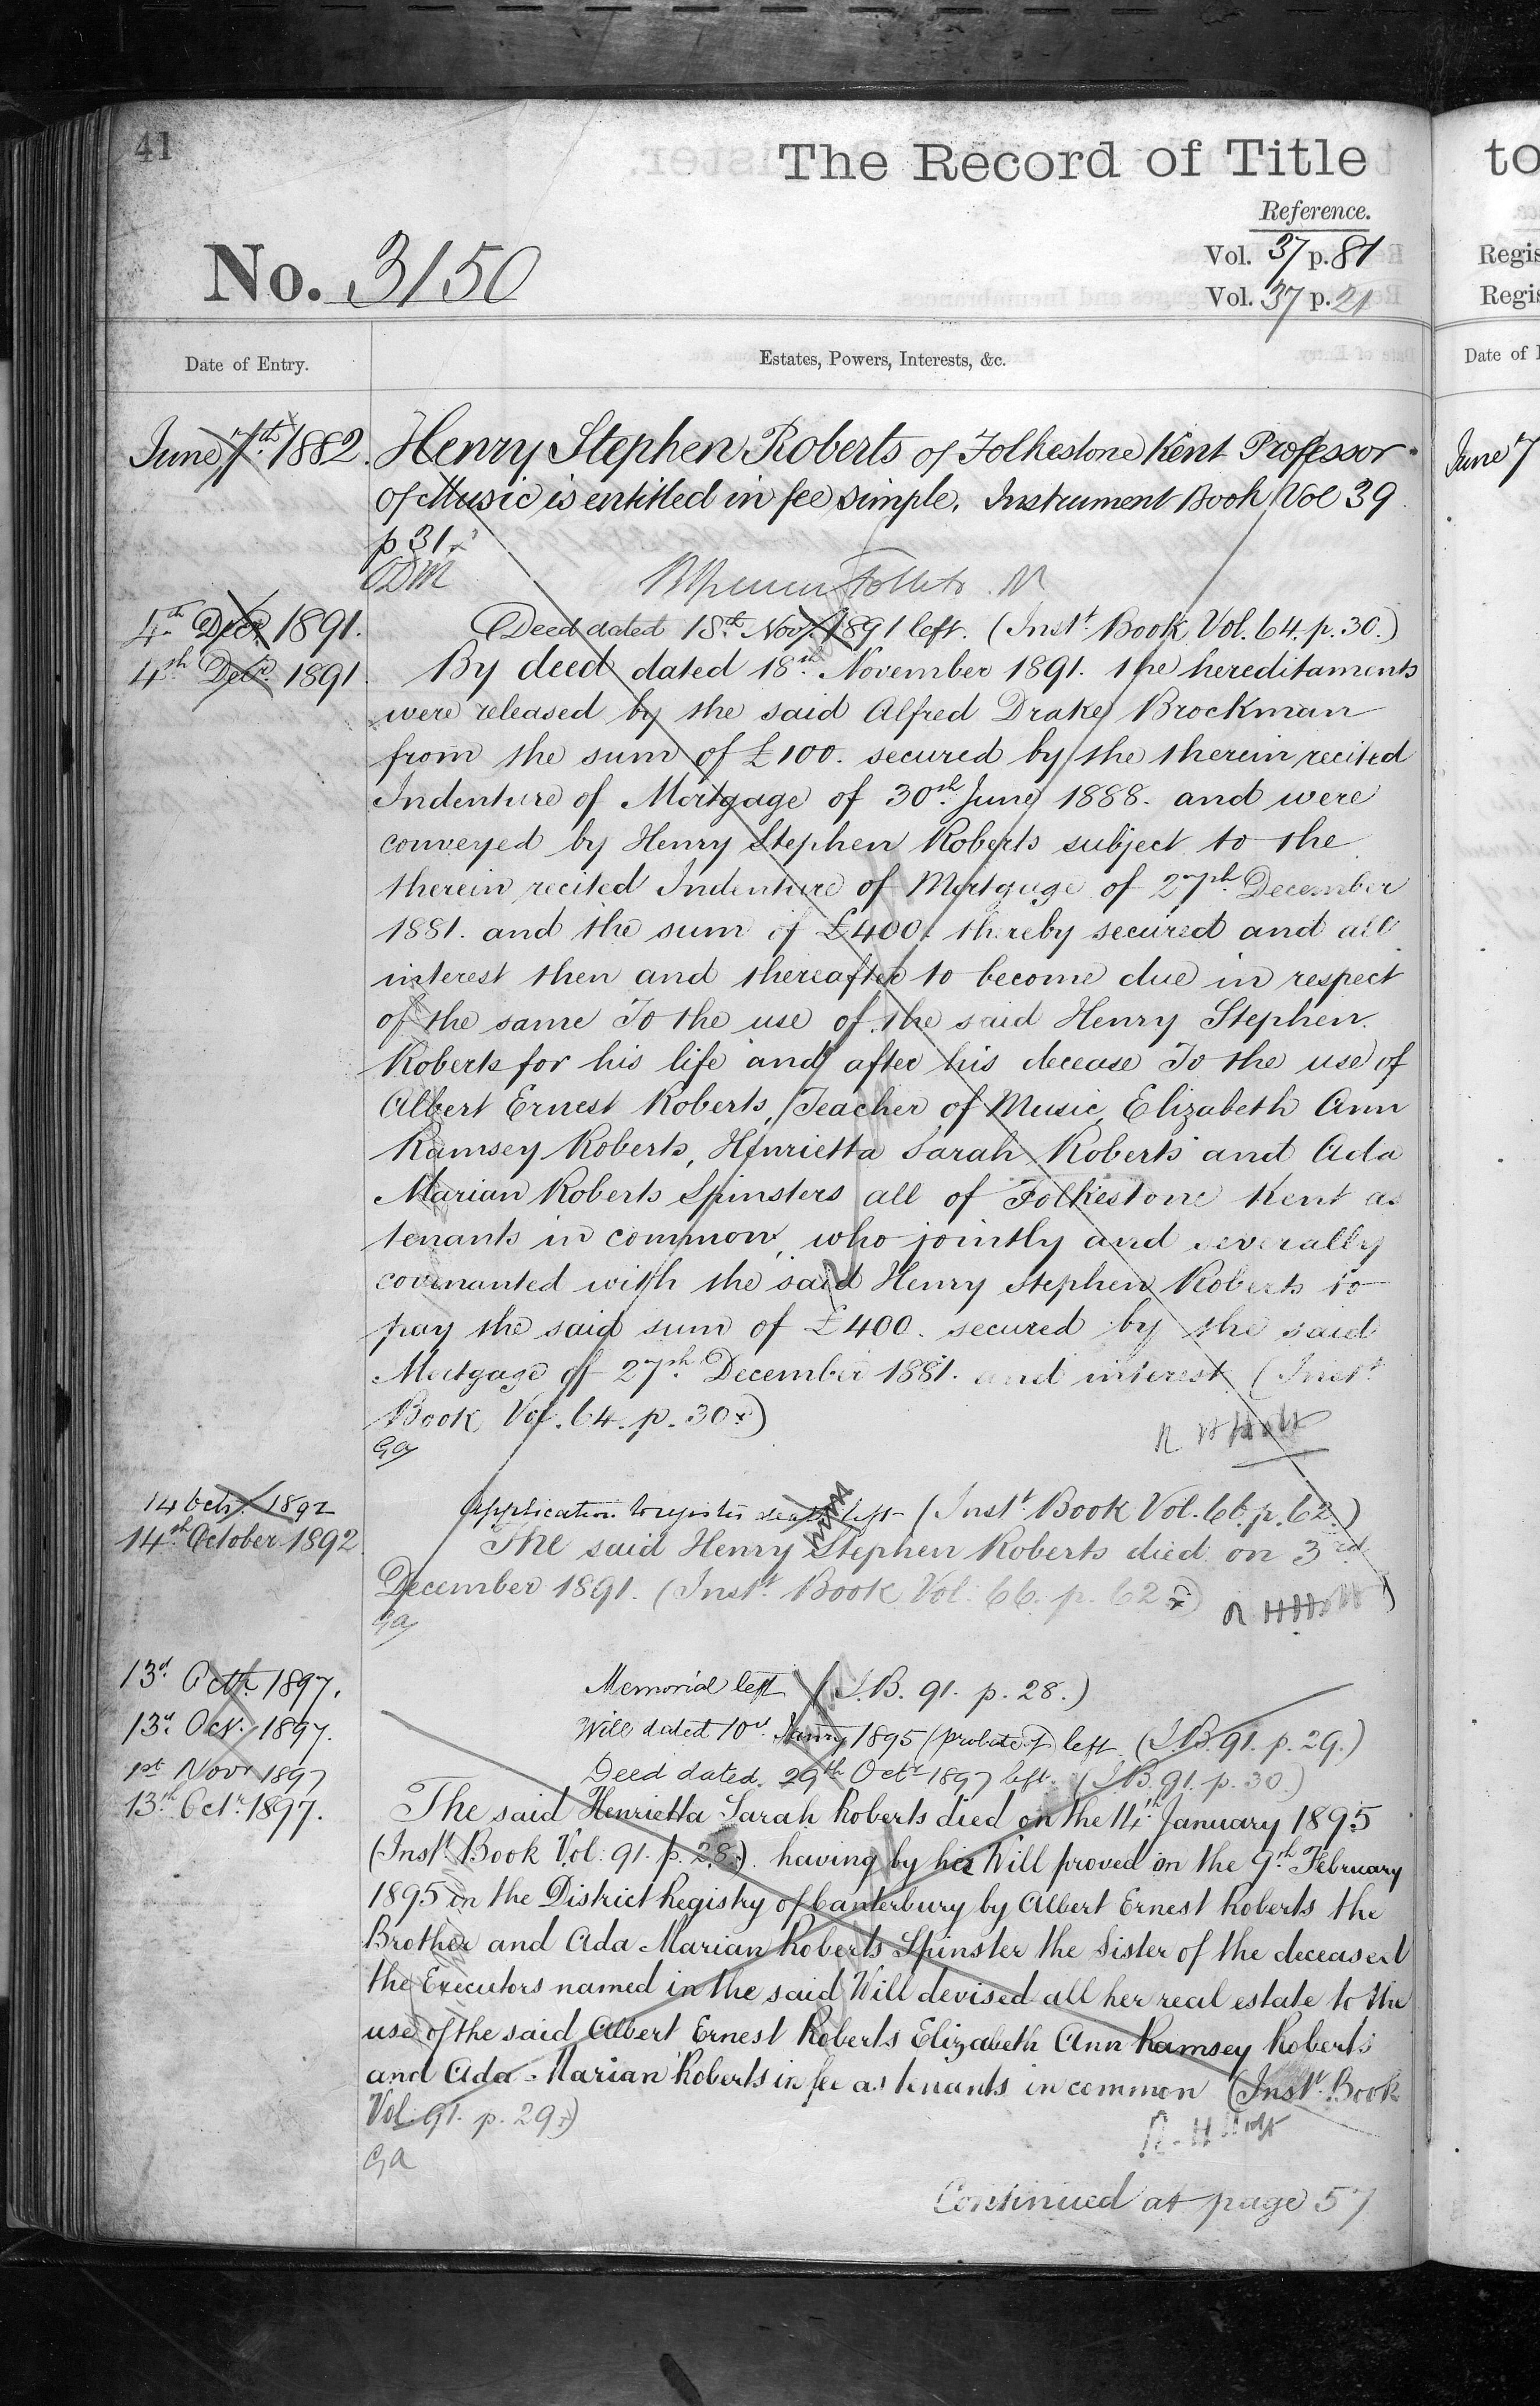 41
The Record of Title
Reference.
Vol. 37 p. 81
No. 3150
Vol. 37 p. 21
Date of Entry.
Estates, Powers, Interests, &c.
June 7th 1882. Henry Stephen Roberts of Folkestone Kent Professor
of Music is entitled in fee simple. Instrument Book Vol 39
p 31.
4th Decr 1891. Deed dated 18th Novr 1891 left. (Instt Book Vol. 64. p. 30.)
4th Decr 1891. By deed dated 18th November 1891. the hereditaments
were released by the said Alfred Drake Brockman
from the sum of £100. secured by the therein recited
Indenture of Mortgage of 30th June 1888. and were
conveyed by Henry Stephen Roberts subject to the
therein recited Indenture of Mortgage of 27th December
1881. and the sum of £400. thereby secured and all
interest then and thereafter to become due in respect
of the same To the use of the said Henry Stephen
Roberts for his life and after his decease To the use of
Albert Ernest Roberts, Teacher of Music, Elizabeth Ann
Ramsey Roberts, Henrietta Sarah Roberts and Ada
Marian Roberts Spinsters all of Folkestone Kent as
tenants in common, who jointly and severally
covenanted with the said Henry Stephen Roberts to
pay the said sum of £400. secured by the said
Mortgage of 27th December 1881. and interest (Instt
Book Vol. 64. p. 30.)
GA
14 Octr. 1892 Application to register death left (Instt Book Vol. 66. p. 62.)
14th October 1892 The said Henry Stephen Roberts died on 3rd
December 1891. (Instt Book Vol. 66. p. 62)
GA
13th Octr 1897. Memorial left (I.B. 91. p. 28.)
13th Oct. 1897. Will dated 10th Janry 1895 (probate of) left. (I.B. 91. p. 29.)
1st Novr 1897 Deed dated 29th Octr 1897 left. (I.B. 91. p. 30.)
13th Octr 1897. The said Henrietta Sarah Roberts died on the 14th January 1895
(Instt Book Vol. 91. p. 28.) having by her Will proved on the 9th February
1895 in the District Registry of Canterbury by Albert Ernest Roberts the
Brother and Ada Marian Roberts Spinster the Sister of the deceased
the Executors named in the said Will devised all her real estate to the
use of the said Albert Ernest Roberts Elizabeth Ann Ramsey Roberts
and Ada Marian Roberts in fee as tenants in common (Instt Book
Vol. 91. p. 29.)
GA
Continued at page 57
to
Regis
Regis
Date of
June 7